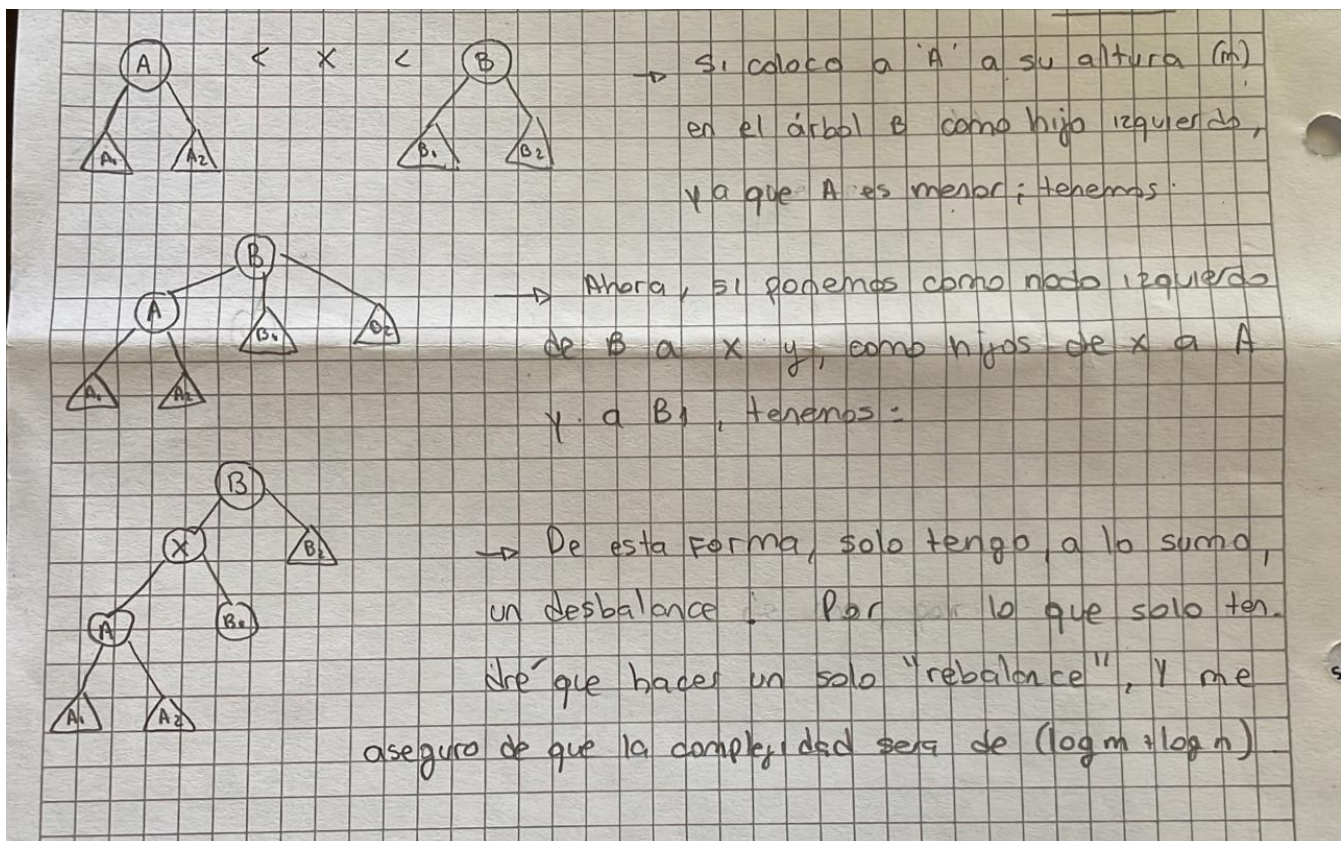 A < x < B
A1 A2 B1 B2
→ Si coloco a 'A' a su altura (m)
en el árbol B como hijo izquierdo,
ya que A es menor; tenemos:
B
A B1 B2
A1 A2
→ Ahora, si ponemos como nodo izquierdo
de B a x y, como hijos de x a A
y a B1, tenemos:
B
X B2
A
A1 A2
→ De esta forma, solo tengo, a lo sumo,
un desbalance. Por lo que solo ten-
dré que hacer un solo "rebalance", y me
aseguro de que la complejidad sera de (log m + log n)